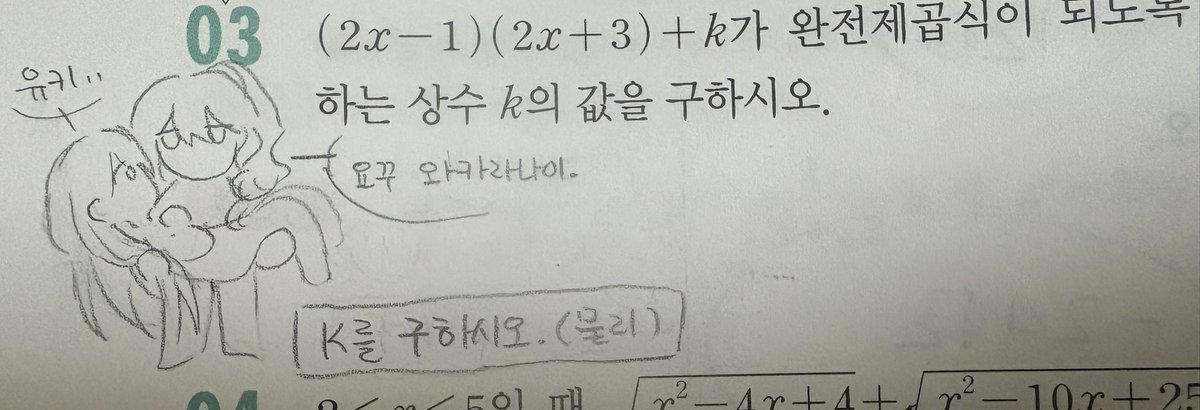 03
(2x−1)(2x+3)+k가 완전제곱식이 되도록
하는 상수 k의 값을 구하시오.
유키..
요꾸 와카라나이.
K를 구하시오. (물리)
04
√x²−4x+4+√x²−10x+25